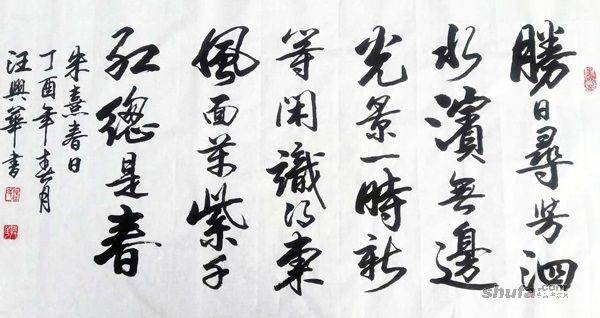 勝日尋芳泗
水濱無邊
光景一時新
等閑識得東
風面萬紫千
紅總是春
朱熹春日
丁酉年春月
汪興華書
shufa.com